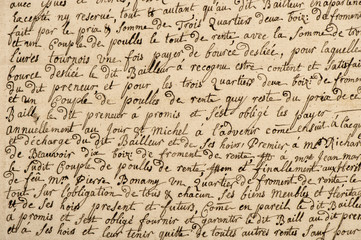 avec issues et
accepté ny reservé tout et autant qu'au dit Bailleur en aparte
fait par le prix & Somme de Trois Quartiers deux boiz: de froment
et un Couple de poulles le tout de rente avec la Somme de
livres tournois une fois payer de bource desliée, pour laquelle
bource desliée le dit Bailleur a recognu estre content et Satisfait
du dit preneur et pour les trois Quartiers deux boiz: de froment
et un Couple de poulles de rente quy reste du prix de ce
Baill, le dit preneur a promis et s'est obligé les payer
annuellement au jour St Michel à l'advenir come ensuit à l'acquit
et décharge du dit Bailleur et de ses hoirs Premier a Mr Richard
de Beauvoir dix boiz: de froment de rente Itt a Mr Jean
le Sudit Couple de poulles de rente Item et finallement aux
feu Mr Pierre Bonamy un Quartier de froment de rente le
tout Sur l'obligation de tous & chacun Ses biens Meubles et Heritages
et de Ses hoirs présent et futurs Come en pareil le dit Baill
a promis et s'est obligé fournir et garentir le dit Baill au dit preneur
et à Ses hoirs et leur tenir quitte de toutes autres rentes Sauf pour